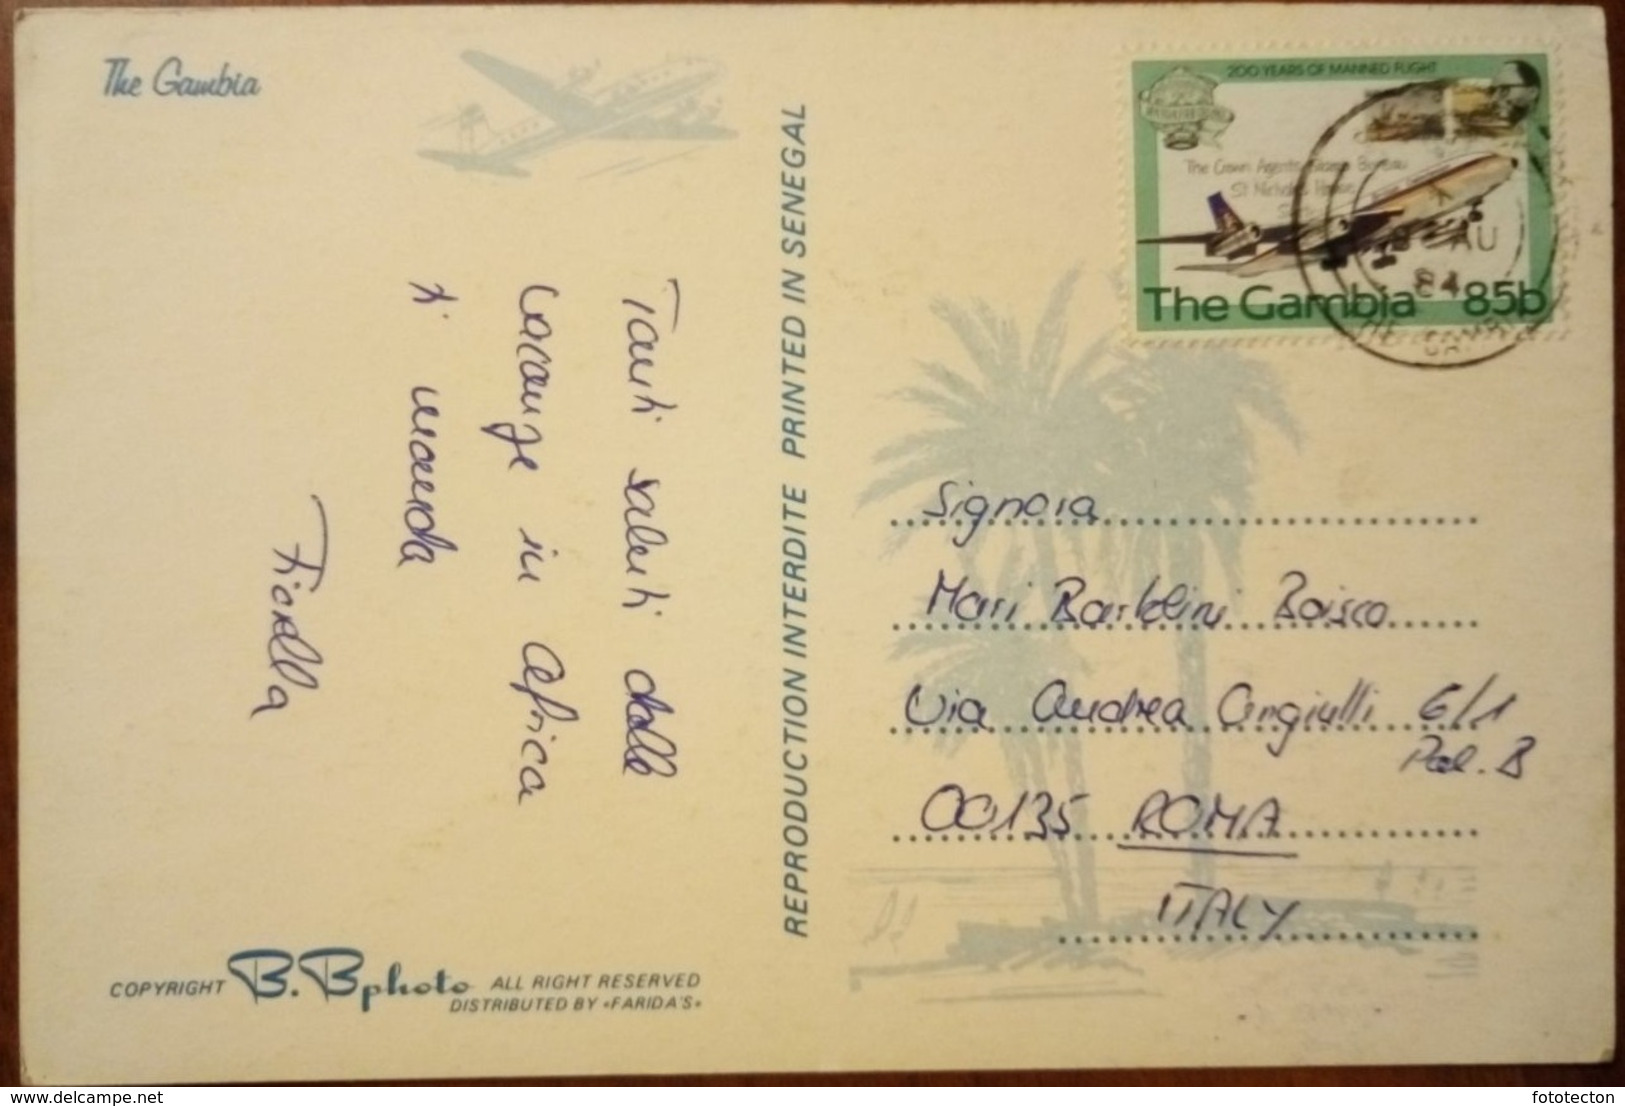 The Gambia
200 YEARS OF MANNED FLIGHT
The Crown Agents Stamp Bureau
St Nicholas House
The Gambia 85b
AU
84
REPRODUCTION INTERDITE PRINTED IN SENEGAL
Tanti saluti dalle
vacanze in Africa
ti manda
Fiorella
Signora
Mari Bartolini Boisco
Via Andrea Angiulli 6/1
Pal. B
00135 ROMA
ITALY
COPYRIGHT B.Bphoto ALL RIGHT RESERVED
DISTRIBUTED BY «FARIDA'S»
delcampe.net
fototecton